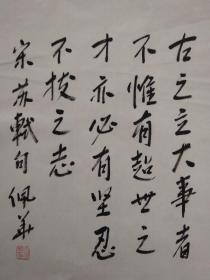 古之立大事者
不惟有超世之
才亦必有坚忍
不拔之志
宋苏轼句 佩华